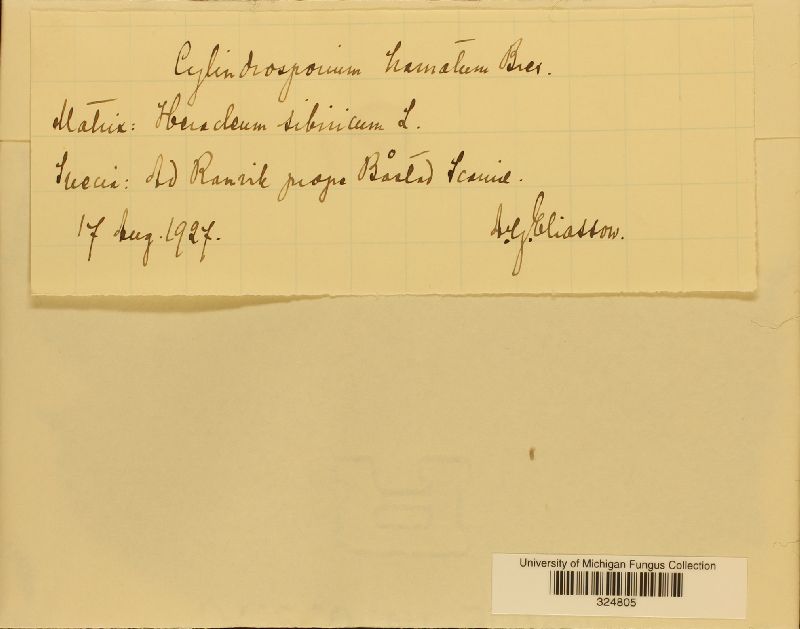 Cylindrosporium hamatum Bres.
Matrix: Heracleum sibiricum L.
Suecia: Ad Ramvik prope Båstad Scaniæ.
17 Aug. 1927.
A.G. Eliasson.
University of Michigan Fungus Collection
324805